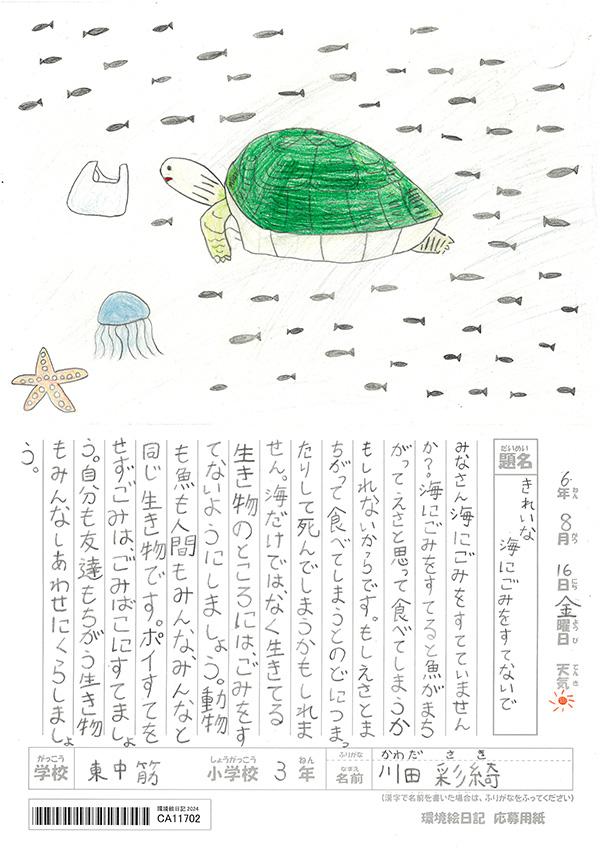 6年 8月 16日 金曜日 天気
ねん がつ にち ようび てんき
だいめい
題名
きれいな
海にごみをすてないで
みなさん海にごみをすてていません
か?海にごみをすてると魚がまち
がってえさと思って食べてしまうか
もしれないからです。もしえさとま
ちがって食べてしまうとのどにつまっ
たりして死んでしまうかもしれま
せん。海だけではなく生きてる
生き物のところには、ごみをす
てないようにしましょう。動物
も魚も人間もみんなみんなと
同じ生き物です。ポイすてを
せずごみは、ごみばこにすてましょ
う。自分も友達もちがう生き物
もみんなしあわせにくらしましょ
う。
がっこう しょうがっこう ねん
学校 東中筋 小学校 3年
ふりがな かわだ さき
なまえ
名前 川田 彩綺
(漢字で名前を書いた場合は、ふりがなをふってください)
環境絵日記2024
CA11702
環境絵日記 応募用紙